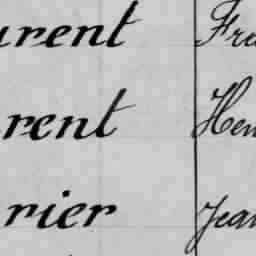 urent Fre
rent Hen
rier Jean